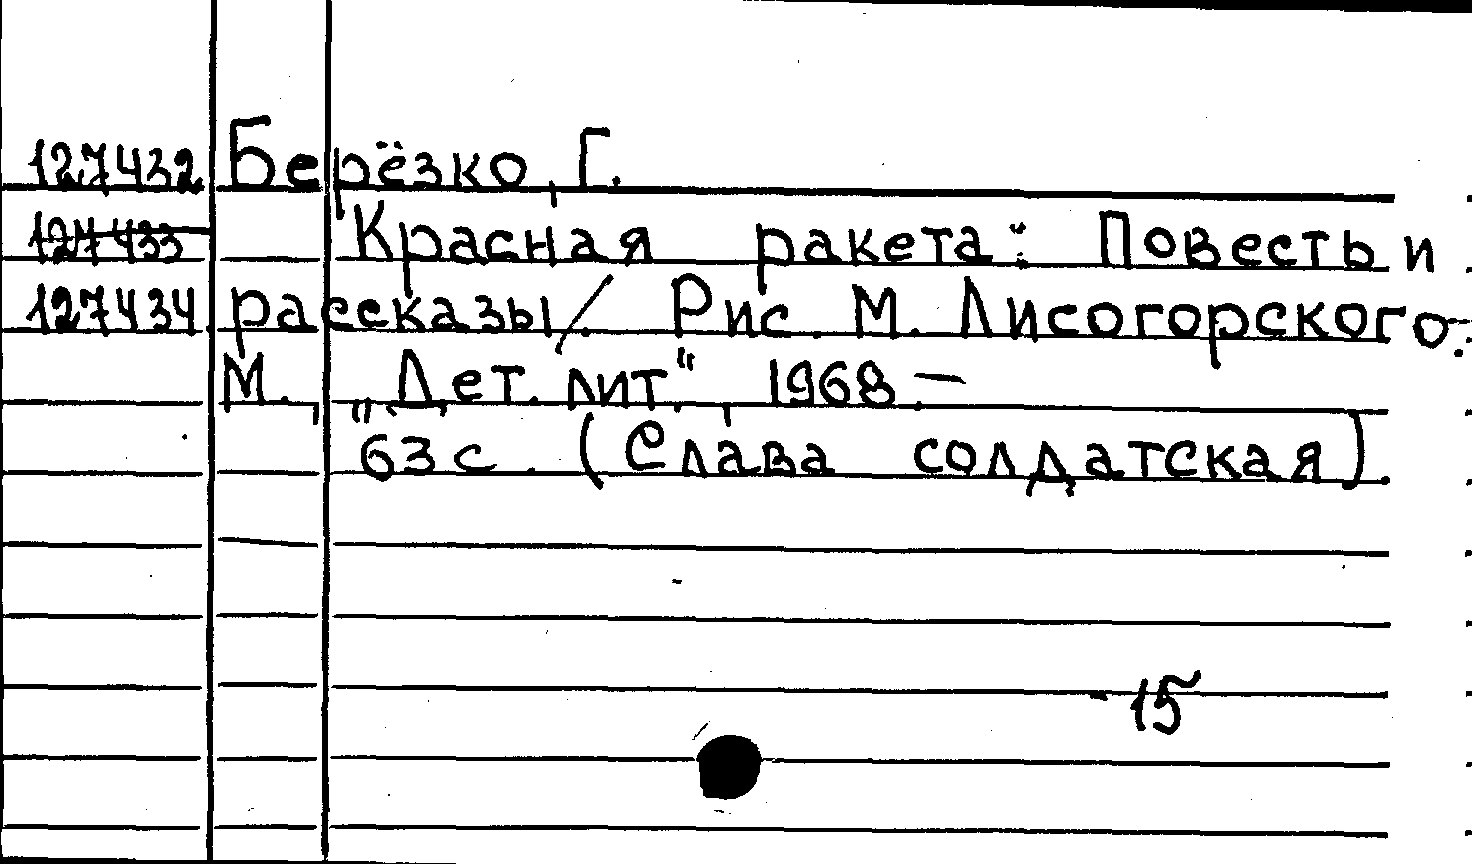 127432 Берёзко, Г.
127433 Красная ракета: Повесть и
127434 рассказы/. Рис. М. Лисогорского.-
М., „Дет. лит.", 1968.-
63 с. (Слава солдатская).
15